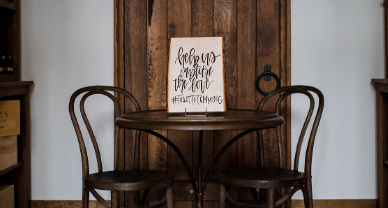 help us
capture
the love
#TOASTTOTEMMING